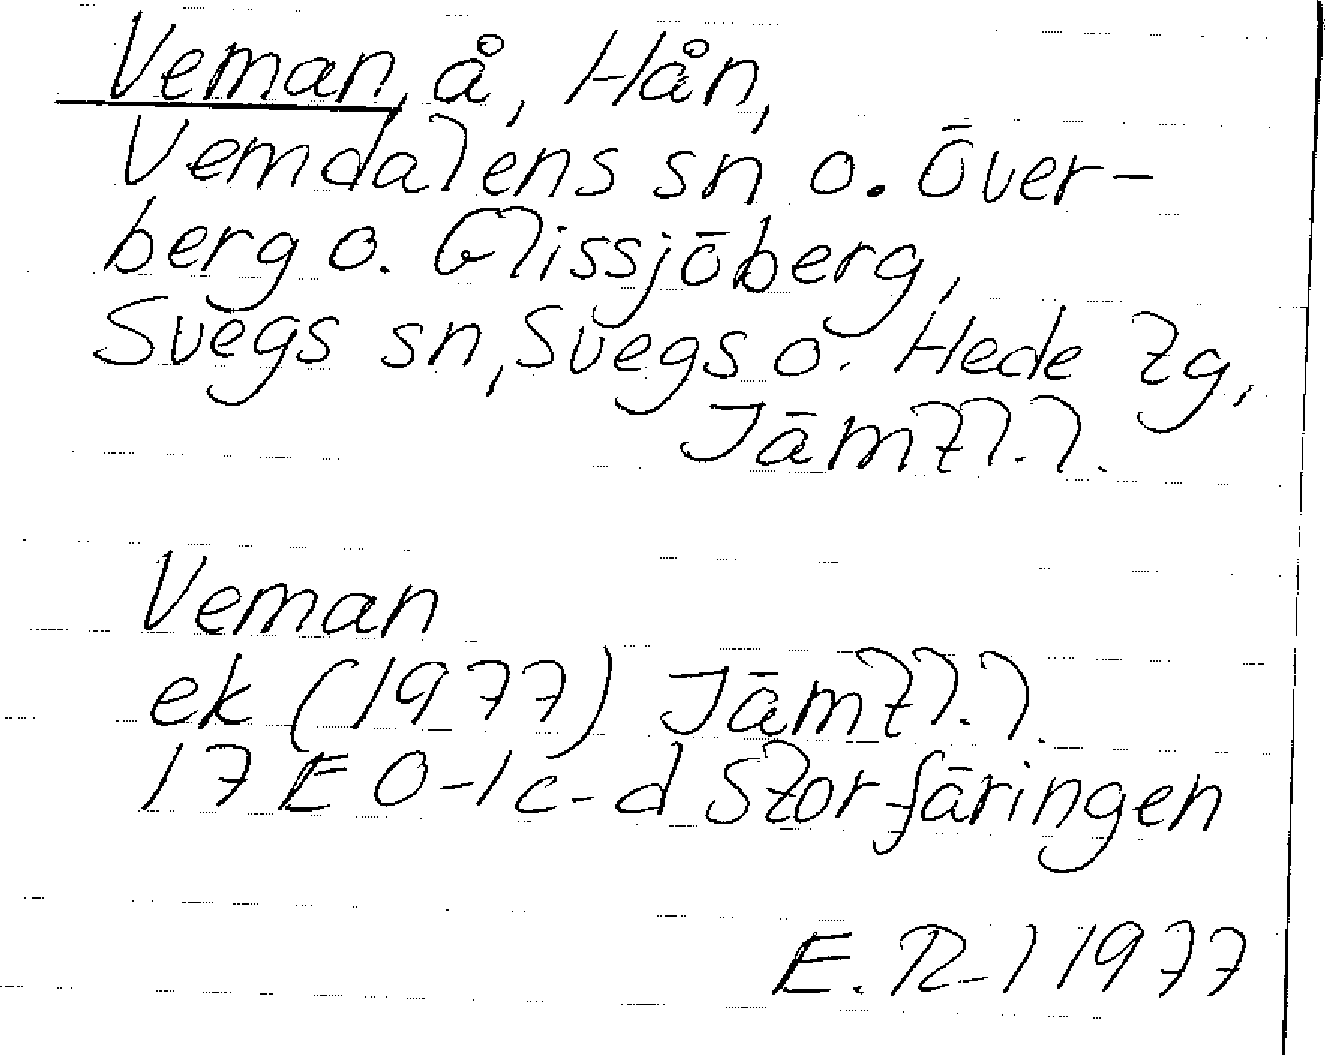 Veman, å, Hån,
Vemdalens sn o. Över-
berg o. Glissjöberg,
Svegs sn, Svegs o. Hede tg,
Jämtl.l.
Veman
ek (1977) Jämtl.l.
17 E 0-1 c-d Storfäringen
E. R-l 1977